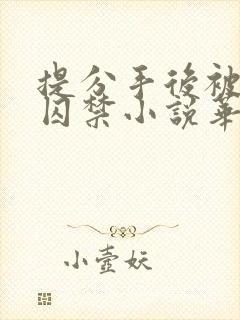 提分手後被
囚禁小說華
小壺妖